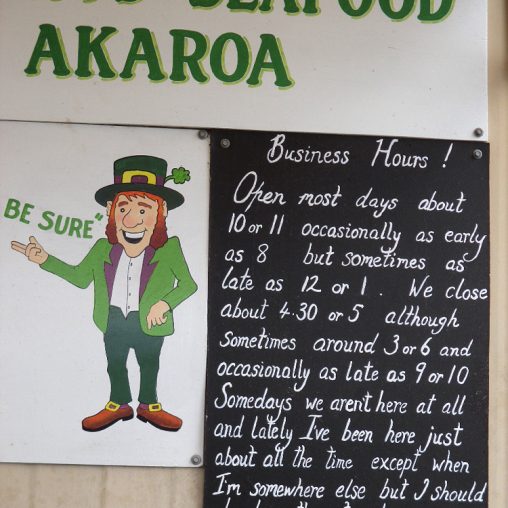 SEAFOOD
AKAROA
BE SURE"
Business Hours !
Open most days about
10 or 11 occasionally as early
as 8 but sometimes as
late as 12 or 1. We close
about 4.30 or 5 although
sometimes around 3 or 6 and
occasionally as late as 9 or 10
Somedays we arent here at all
and lately I've been here just
about all the time except when
I'm somewhere else but I should